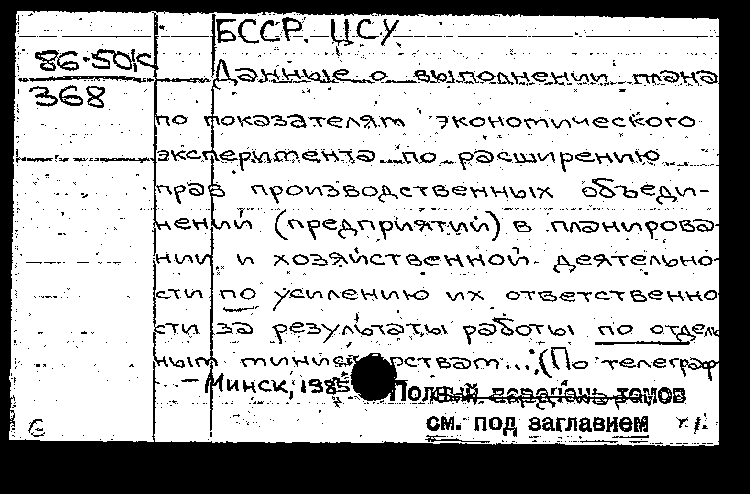 БССР. ЦСУ.
86-50к
368
Данные о выполнении плана
по показателям экономического
эксперимента по расширению
прав производственных объеди-
нений (предприятий) в планирова-
нии и хозяйственной деятельно-
сти по усилению их ответственно-
сти за результаты работы по отдель
ным министерствам...; (По телеграф
- Минск, 1985
Полный перечень томов
см. под заглавием т.1.
6